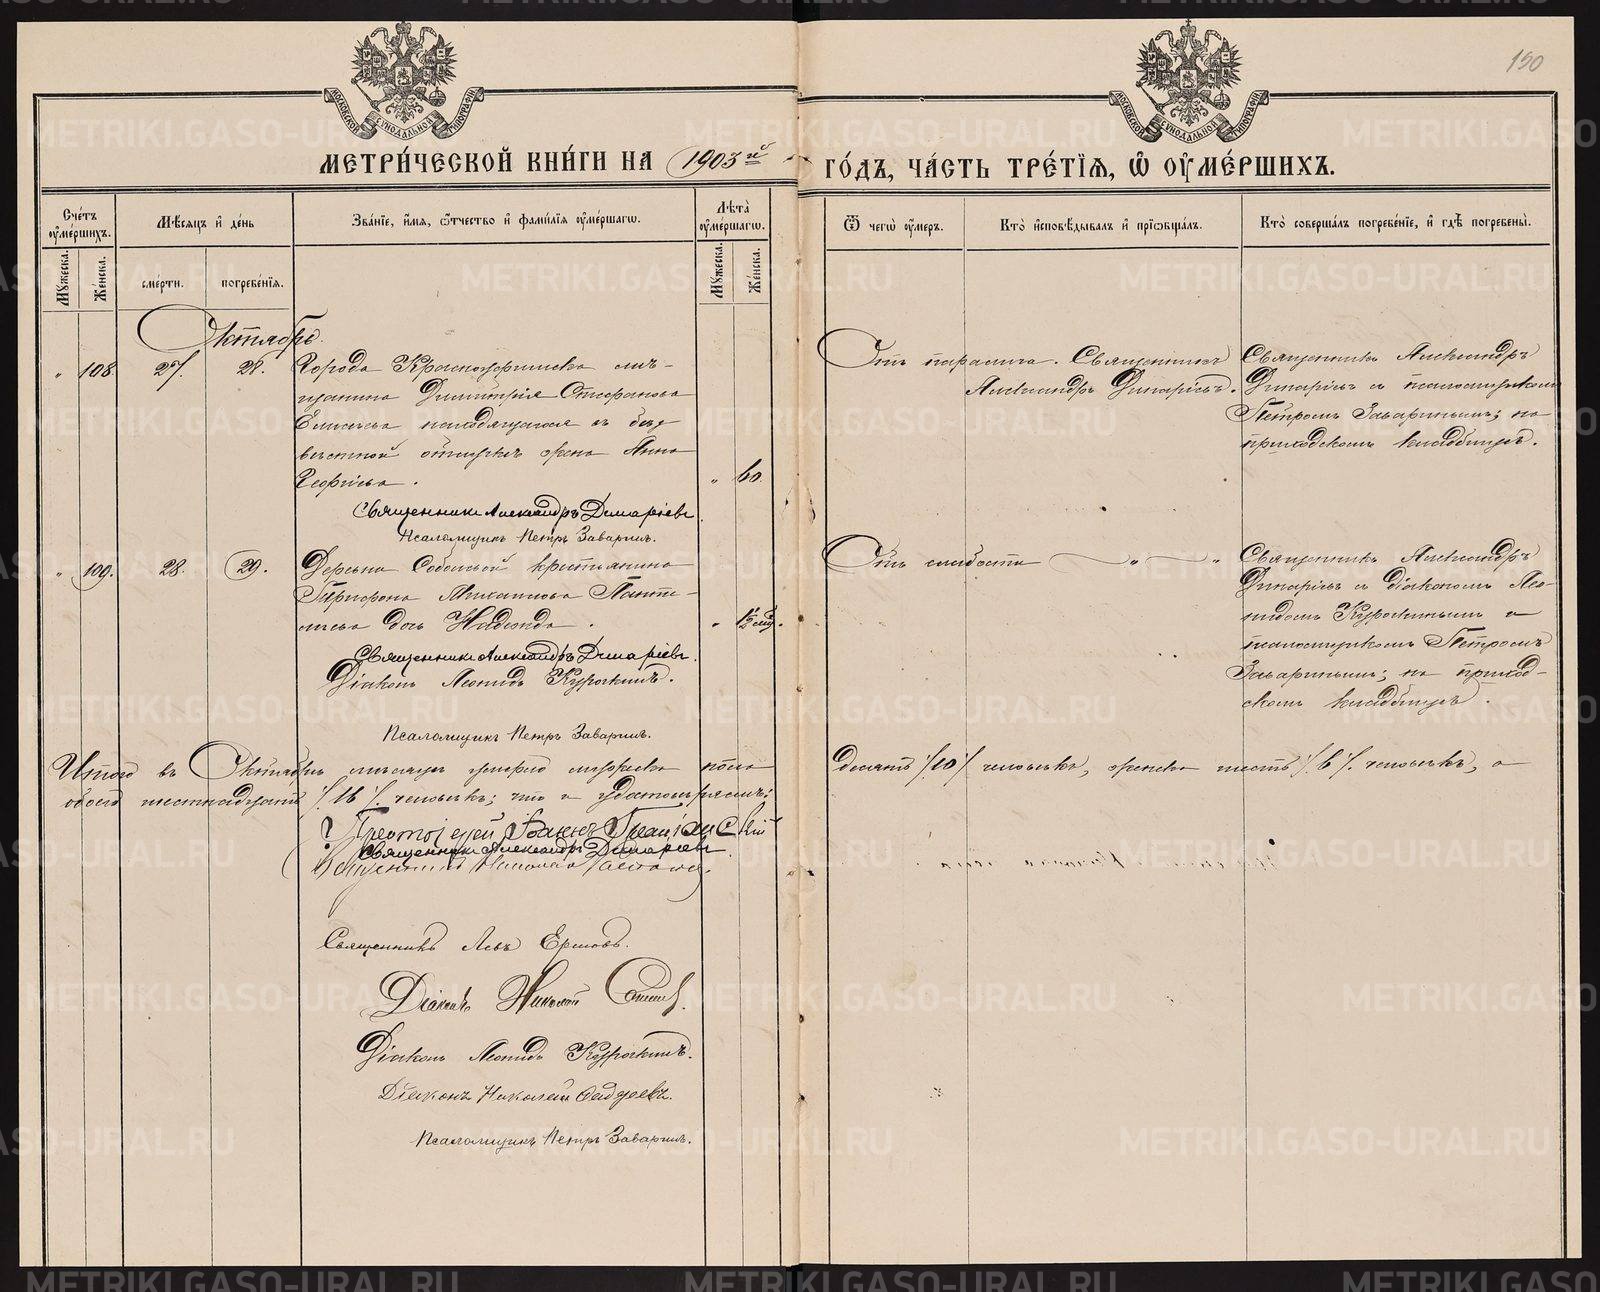 150
МОСКОВСКОЙ СѴНОДАЛЬНОЙ ТИПОГРАФІИ
МОСКОВСКОЙ СѴНОДАЛЬНОЙ ТИПОГРАФІИ
МЕТРИ́ЧЕСКОЙ КНИ́ГИ НА 1903 й ГО́ДЪ, ЧА́СТЬ ТРЕ́ТІѦ, Ѽ ОУМЕ́РШИХЪ.
Счетъ оумершихъ.
Мꙋжеска.
Женска.
Мѣсяцъ и день
смерти.
погребенія.
Званіе, имя, ѿтчество и фамилія оумершагѡ.
Лѣта оумершагѡ.
Мꙋжеска.
Женска.
Ѿ чегѡ оумеръ.
Кто исповѣдывалъ и пріѡбщалъ.
Кто совершалъ погребеніе, и гдѣ погребены.
Октябрь.
" 108. 27. 28. Города Красноуфимска мѣ-
щанина Димитрія Стефанова
Елисѣева находящагося въ без-
вѣстной отлучкѣ жена Анна
Георгіева. " 60.
Священникъ Александръ Динаріевъ
Псаломщикъ Петръ Заваринъ.
Отъ паралича. Священникъ
Александръ Динаріевъ.
Священникъ Александръ
Динаріевъ съ псаломщикомъ
Петромъ Заваринымъ; на
приходскомъ кладбищѣ.
" 109. 28. 29. Деревни Собольей крестьянина
Трифона Михаилова Панте-
лѣева дочь Надежда. "
Священникъ Александръ Динаріевъ.
Діаконъ Леонидъ Курочкинъ.
Псаломщикъ Петръ Заваринъ.
Отъ слабости " "
Священникъ Александръ
Динаріевъ съ діакономъ Лео-
нидомъ Курочкинымъ и
псаломщикомъ Петромъ
Заваринымъ; на приход-
скомъ кладбищѣ.
Итого въ Октябрѣ мѣсяцѣ умерло мужеска пола десять /10/ человѣкъ, женска шесть /6/ человѣкъ, а
обоего шестнадцать /16/ человѣкъ; что и удостовѣряемъ:
Протоіерей Іоаннъ
Священникъ Александръ Динаріевъ.
Священникъ Николай
Священникъ Левъ Ершовъ.
Діаконъ Николай
Діаконъ Леонидъ Курочкинъ.
Діаконъ Николай
Псаломщикъ Петръ Заваринъ.
METRIKI.GASO-URAL.RU